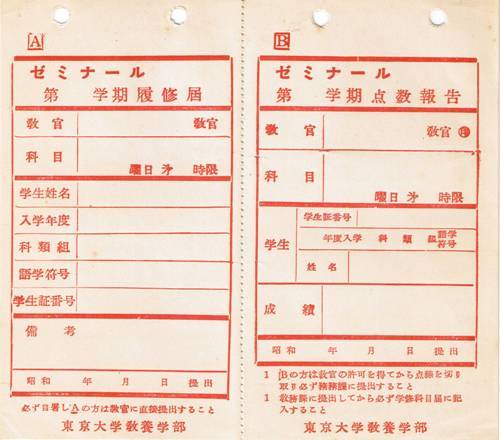 A
ゼミナール
第 学期履修届
教官 教官
科目 曜日 第 時限
学生姓名
入学年度
科類組
語学符号
学生証番号
備考
昭和 年 月 日 提出
必ず自署しAの方は教官に直接提出すること
東京大学教養学部
B
ゼミナール
第 学期点数報告
教官 教官 ㊞
科目
曜日 第 時限
学生証番号
学生 年度入学 科 類 組 語学符号
姓名
成績
昭和 年 月 日 提出
1 Bの方は教官の許可を得てから点線を切り
取り必ず教務課に提出すること
1 教務課に提出してから必ず学修科目届に記
入すること
東京大学教養学部